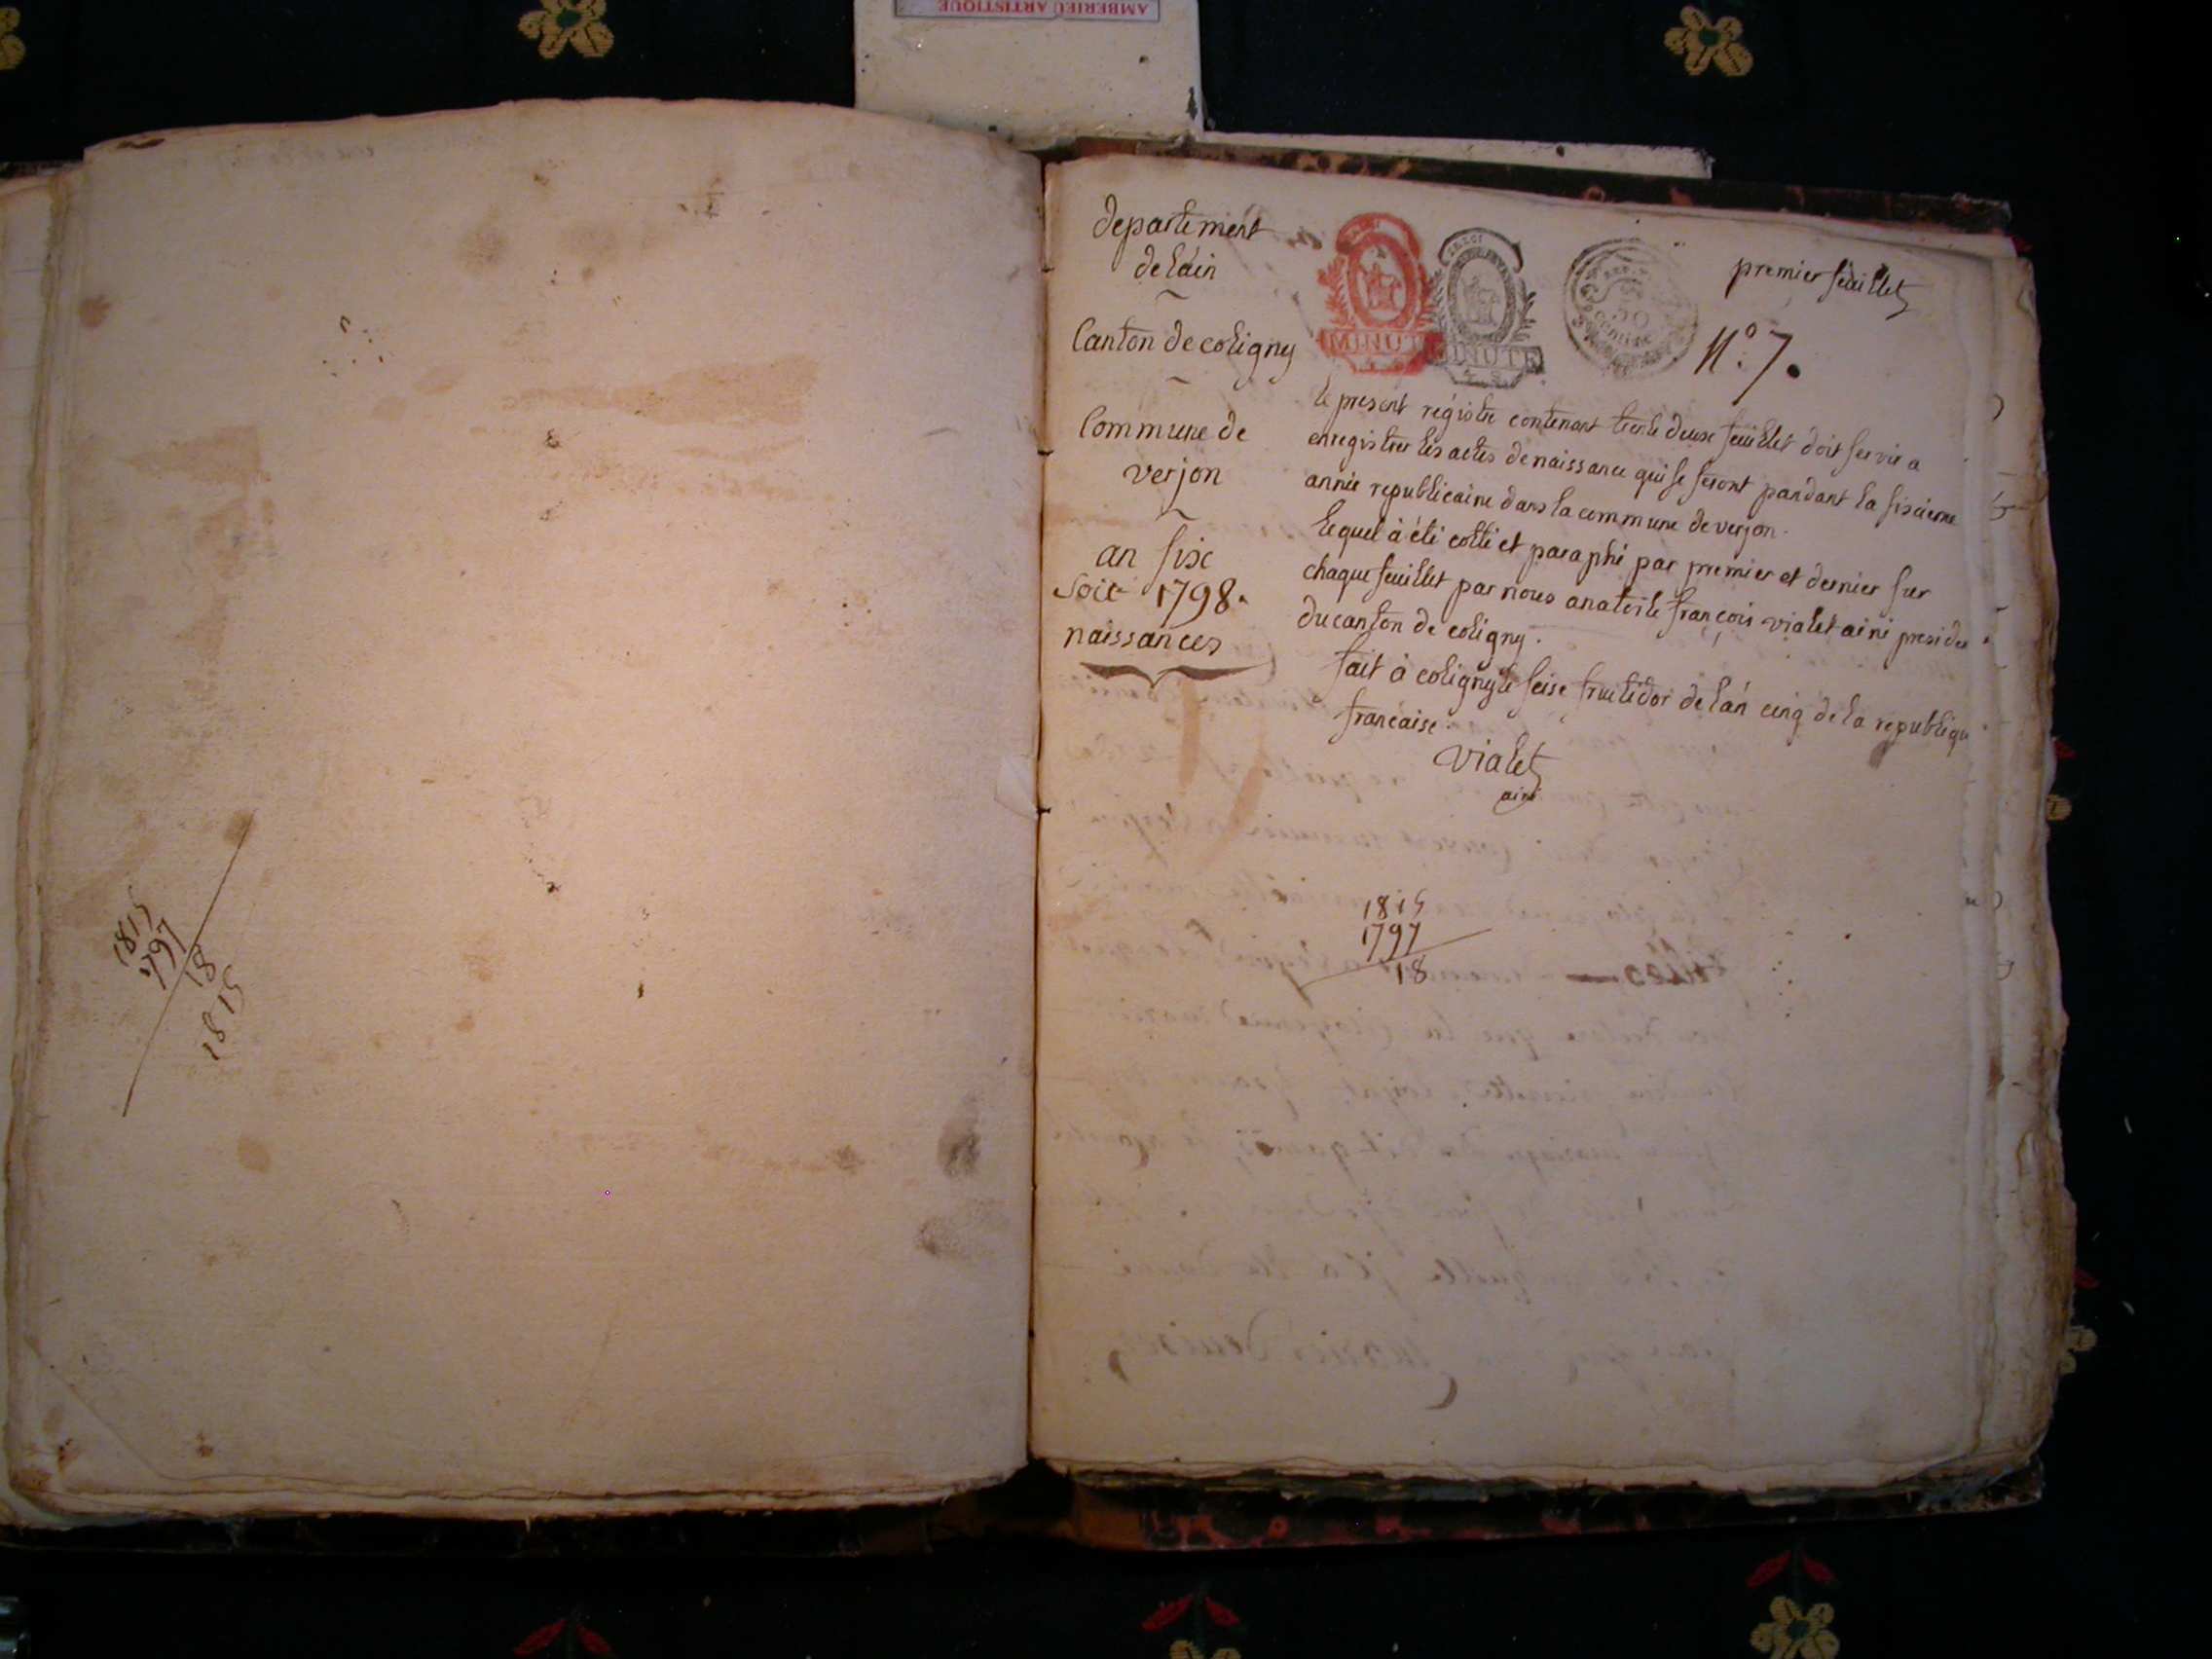 AMBERIEU ARTISTIQUE
1815
1797
18
1815
departement
de l'ain
Canton de coligny
Commune de
verjon
an six
soit 1798.
naissances
MINUTE
MINUTE
50
centimes
premier feuillet
N.° 7.
le present régistre contenant trente deux feuillet doit servir a
enregistrer les actes de naissance qui se feront pandant la sisieme
année republicaine dans la commune de verjon.
lequel à été cotté et paraphé par premier et dernier sur
chaque feuillet par nous anatoile françois vialet ainé preside
du canton de coligny.
fait à coligny le seise fructidor de l'an cinq de la republiqu
francaise.
vialet
ainé
1815
1797
18